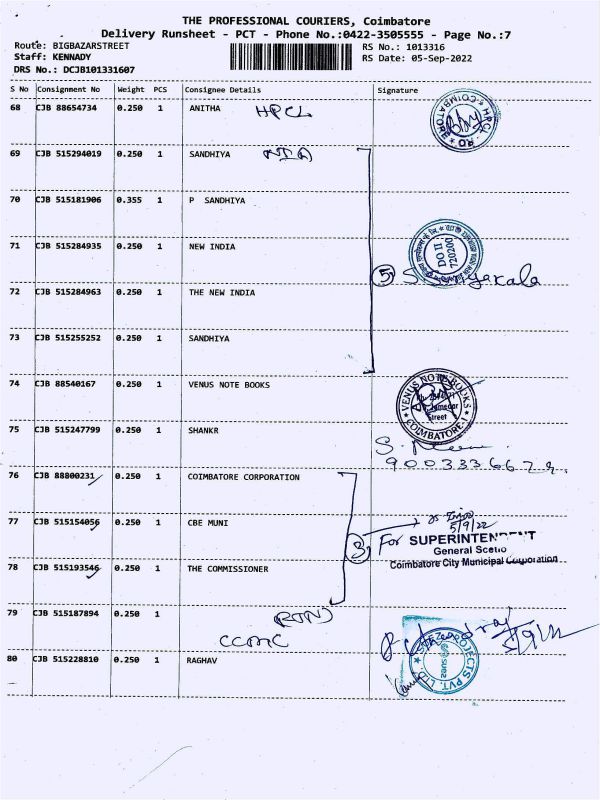 THE PROFESSIONAL COURIERS, Coimbatore
Delivery Runsheet - PCT - Phone No.:0422-3505555 - Page No.:7
Route: BIGBAZARSTREET RS No.: 1013316
Staff: KENNADY RS Date: 05-Sep-2022
DRS No.: DCJB101331607
S No Consignment No Weight PCS Consignee Details Signature
68 CJB 88654734 0.250 1 ANITHA HPCL
COIMBATORE HPCL RO
69 CJB 515294019 0.250 1 SANDHIYA NIA
70 CJB 515181906 0.355 1 P SANDHIYA
71 CJB 515284935 0.250 1 NEW INDIA
DO II
720200
5
72 CJB 515284963 0.250 1 THE NEW INDIA
73 CJB 515255252 0.250 1 SANDHIYA
74 CJB 88540167 0.250 1 VENUS NOTE BOOKS
VENUS NOTE BOOKS
Street
COIMBATORE
75 CJB 515247799 0.250 1 SHANKR
76 CJB 88800231 0.250 1 COIMBATORE CORPORATION
77 CJB 515154056 0.250 1 CBE MUNI
5/9/22
3 For SUPERINTENDENT
General Sectio
Coimbatore City Municipal Corporation
78 CJB 515193546 0.250 1 THE COMMISSIONER
79 CJB 515187894 0.250 1
CCMC
80 CJB 515228810 0.250 1 RAGHAV
PROJECTS PVT. LTD.